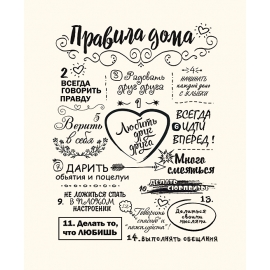 Правила дома
2 ВСЕГДА
ГОВОРИТЬ
ПРАВДУ
3 Радовать
друг друга
4 НАЧИНАТЬ
каждый день
с улыбки
1
Любить
друг
друга
5 Верить
в себя
6 ВСЕГДА
ИДТИ
ВПЕРЁД!
Много
смеяться
7 ДАРИТЬ
объятия и поцелуи
10 ДЕЛАТЬ
СЮРПРИЗЫ
НЕ ЛОЖИТЬСЯ СПАТЬ
9. В ПЛОХОМ
НАСТРОЕНИИ
Говорить
спасибо и
пожалуйста!
13.
Делиться
своими
мыслями
11. Делать то,
что ЛЮБИШЬ
14. ВЫПОЛНЯТЬ ОБЕЩАНИЯ